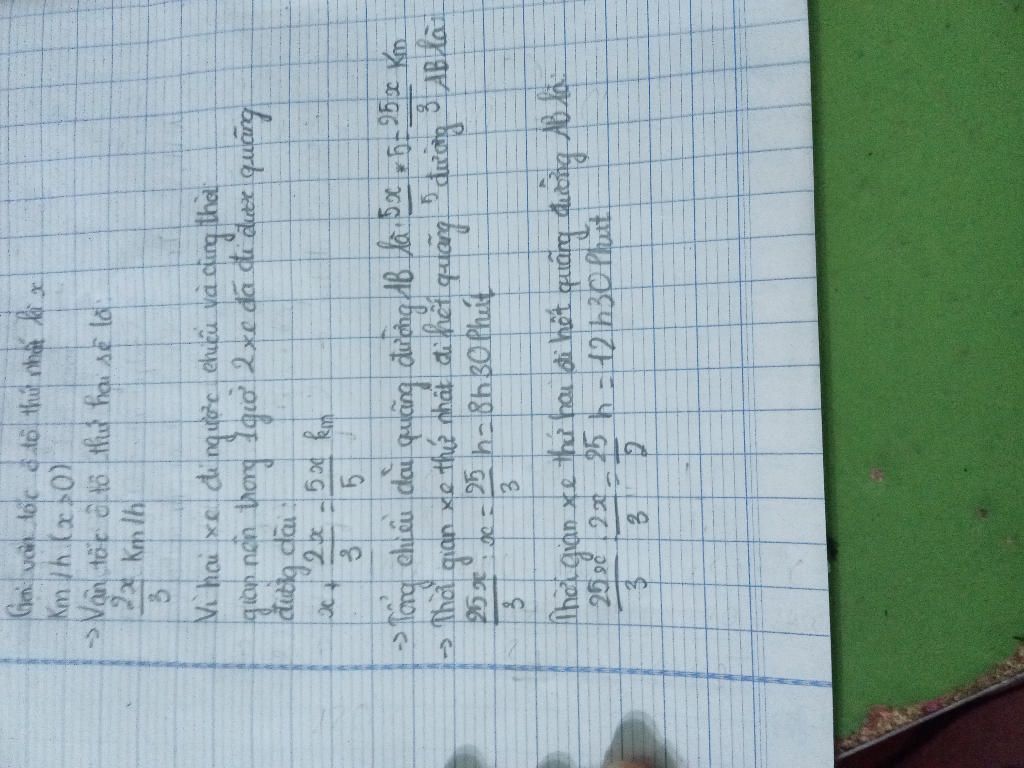 Gọi vận tốc ô tô thứ nhất là x
Km/h (x>0)
-> Vận tốc ô tô thứ hai sẽ là:
2x/3 Km/h
Vì hai xe đi ngược chiều và cùng thời
gian nên trong 1 giờ 2 xe đã đi được quãng
đường dài:
x + 2x/3 = 5x/5 km
-> Tổng chiều dài quãng đường AB là: 5x/5 * 5 = 25x/3 Km
-> Thời gian xe thứ nhất đi hết quãng đường AB là:
25x/3 : x = 25/3 h = 8h30 Phút
Thời gian xe thứ hai đi hết quãng đường AB là:
25x/3 : 2x/3 = 25/2 h = 12h30 Phút